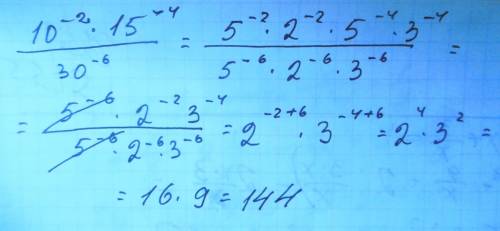 10⁻² · 15⁻⁴ / 30⁻⁶ = 5⁻² · 2⁻² · 5⁻⁴ · 3⁻⁴ / 5⁻⁶ · 2⁻⁶ · 3⁻⁶ =
= 5⁻⁶ · 2⁻² 3⁻⁴ / 5⁻⁶ · 2⁻⁶ · 3⁻⁶ = 2⁻²⁺⁶ · 3⁻⁴⁺⁶ = 2⁴ · 3² =
= 16 · 9 = 144